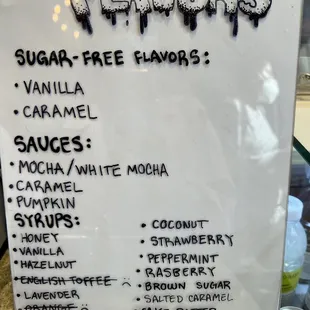 FLAVORS
SUGAR-FREE FLAVORS:
• VANILLA
• CARAMEL
SAUCES:
• MOCHA/WHITE MOCHA
• CARAMEL
• PUMPKIN
SYRUPS:
• HONEY
• VANILLA
• HAZELNUT
• ENGLISH TOFFEE :(
• LAVENDER
• ORANGE :(
• COCONUT
• STRAWBERRY
• PEPPERMINT
• RASBERRY
• BROWN SUGAR
• SALTED CARAMEL